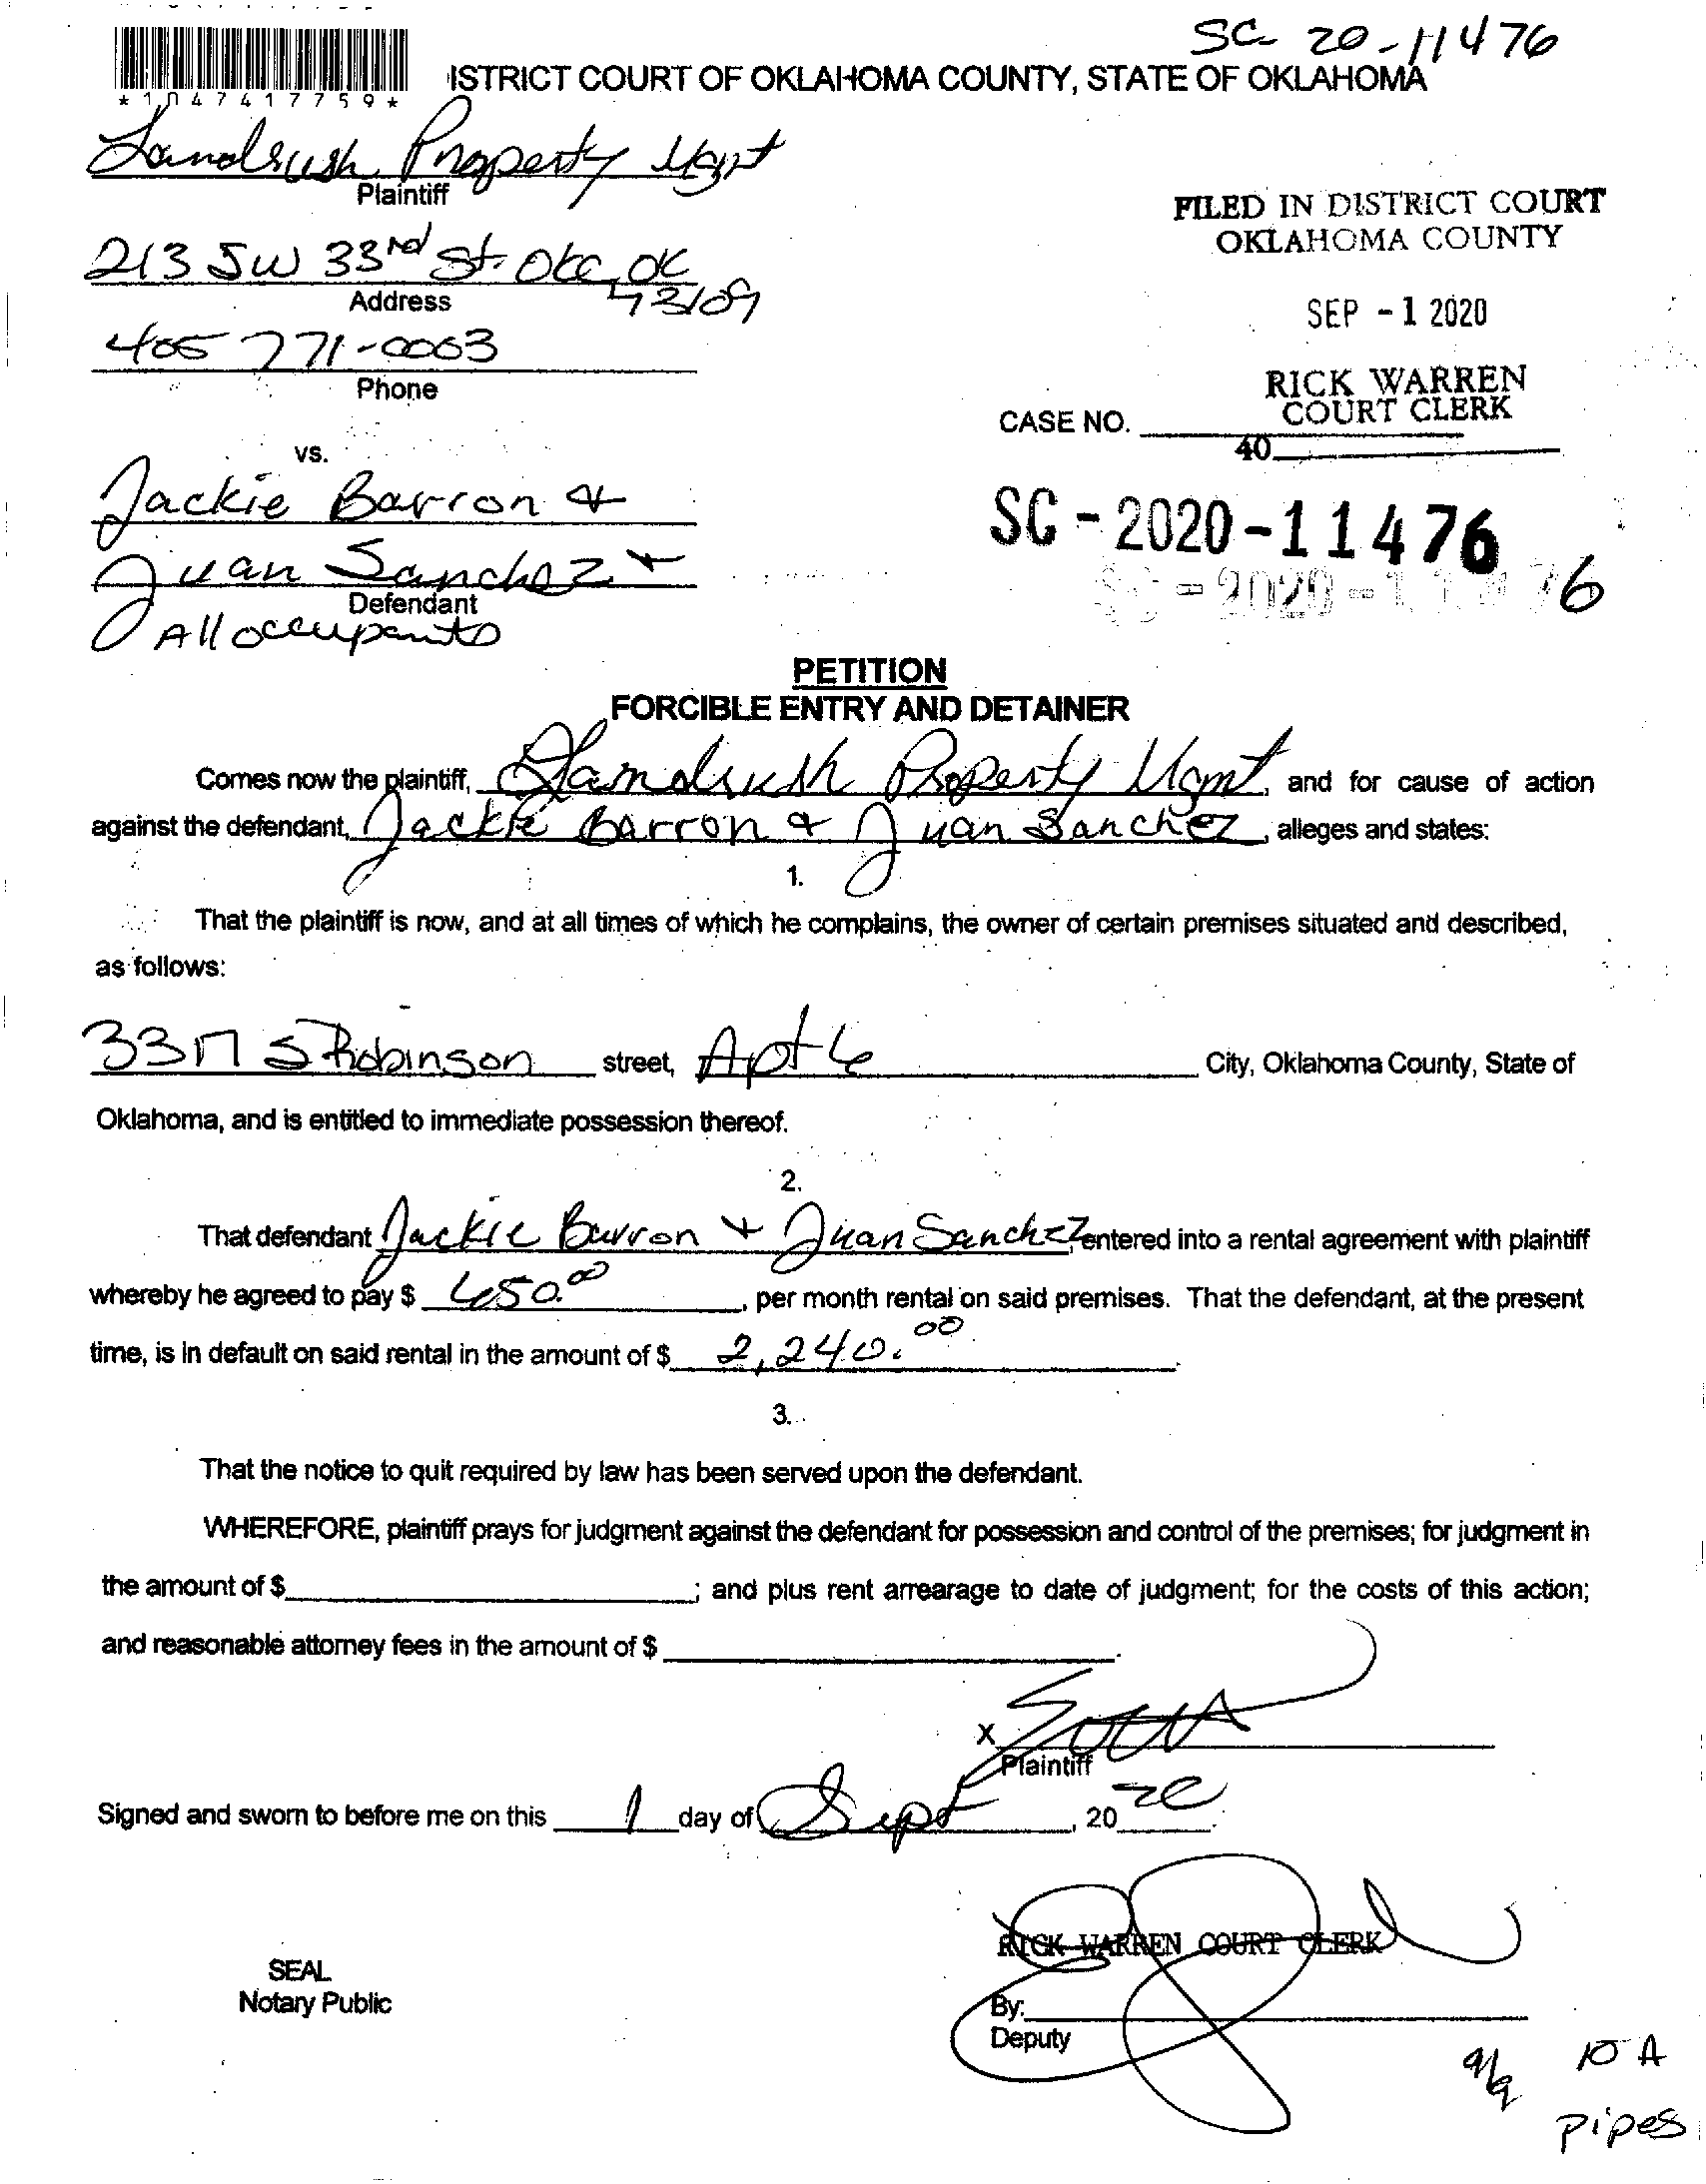 SC- 20-11476
ISTRICT COURT OF OKLAHOMA COUNTY, STATE OF OKLAHOMA
*1047417759*
Landrush Property Mgmt
Plaintiff
FILED IN DISTRICT COURT
OKLAHOMA COUNTY
213 SW 33rd St. OKC, OK
73109
Address
SEP - 1 2020
405 771-0063
Phone
RICK WARREN
COURT CLERK
CASE NO.
40
vs.
Jackie Barron &
SC - 2020 - 11476
Juan Sanchez +
SC - 2020 - 11476
Defendant
All occupants
PETITION
FORCIBLE ENTRY AND DETAINER
Comes now the plaintiff, Landrush Property Mgmt, and for cause of action
against the defendant, Jackie Barron & Juan Sanchez, alleges and states:
1.
That the plaintiff is now, and at all times of which he complains, the owner of certain premises situated and described,
as follows:
3317 S Robinson street, Apt 6 City, Oklahoma County, State of
Oklahoma, and is entitled to immediate possession thereof.
2.
That defendant Jackie Barron + Juan Sanchez, entered into a rental agreement with plaintiff
whereby he agreed to pay $ 650.00, per month rental on said premises. That the defendant, at the present
time, is in default on said rental in the amount of $ 2,240.00.
3.
That the notice to quit required by law has been served upon the defendant.
WHEREFORE, plaintiff prays for judgment against the defendant for possession and control of the premises; for judgment in
the amount of $ ; and plus rent arrearage to date of judgment; for the costs of this action;
and reasonable attorney fees in the amount of $ .
X
Plaintiff
Signed and sworn to before me on this 1 day of Sept, 20 20.
RICK WARREN COURT CLERK
SEAL
Notary Public
By:
Deputy
9/9 10 A
Pipes